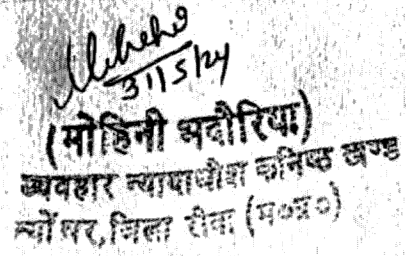 31/5/24
(मोहिनी भदौरिया)
व्यवहार न्यायाधीश कनिष्ठ खण्ड
त्योंथर, जिला रीवा (म०प्र०)